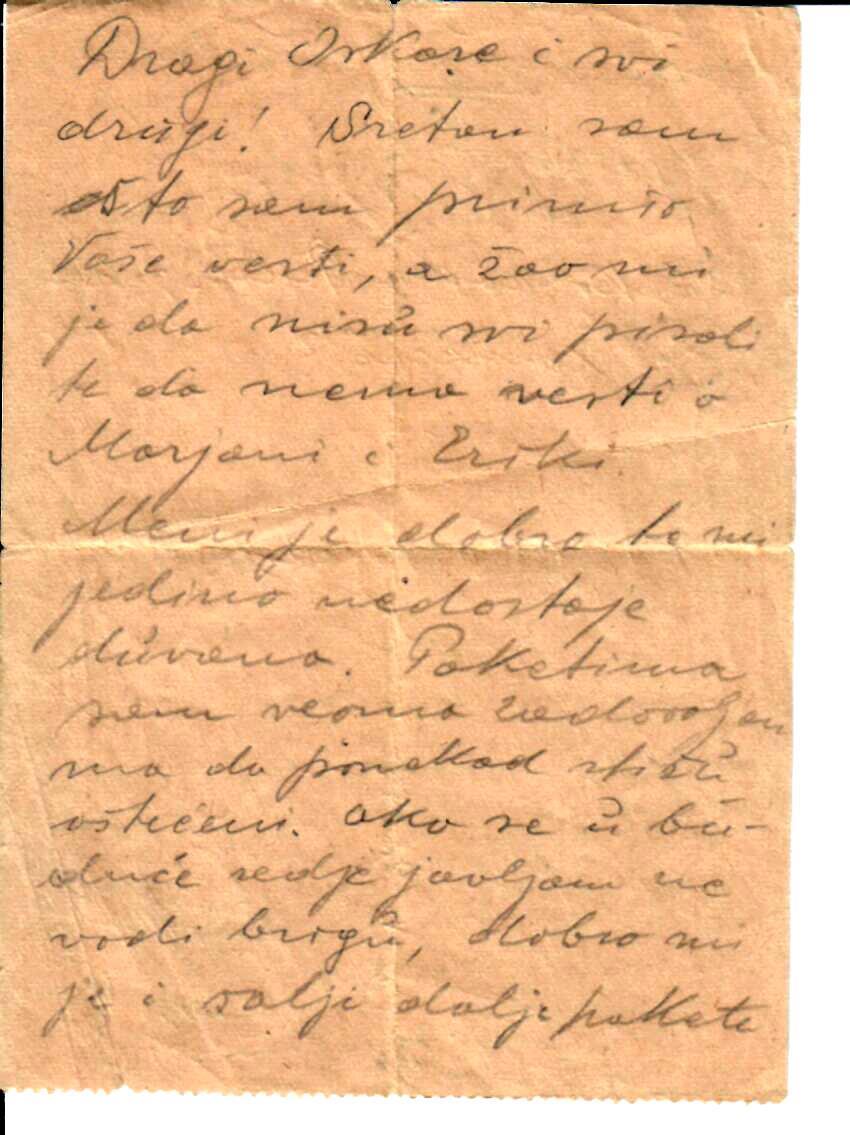 Dragi Oskare i svi
drugi! Sretan sam
što sam primio
Vaše vesti, a žao mi
je da nisu svi pisali
te da nema vesti o
Marjani i Eriki.
Meni je dobro te mi
jedino nedostaje
duvana. Paketima
sam veoma zadovoljan
ma da ponekad stižu
oštećeni. Ako se u bu-
duće redje javljam ne
vodi brigu, dobro mi
je i šalji dalje pakete